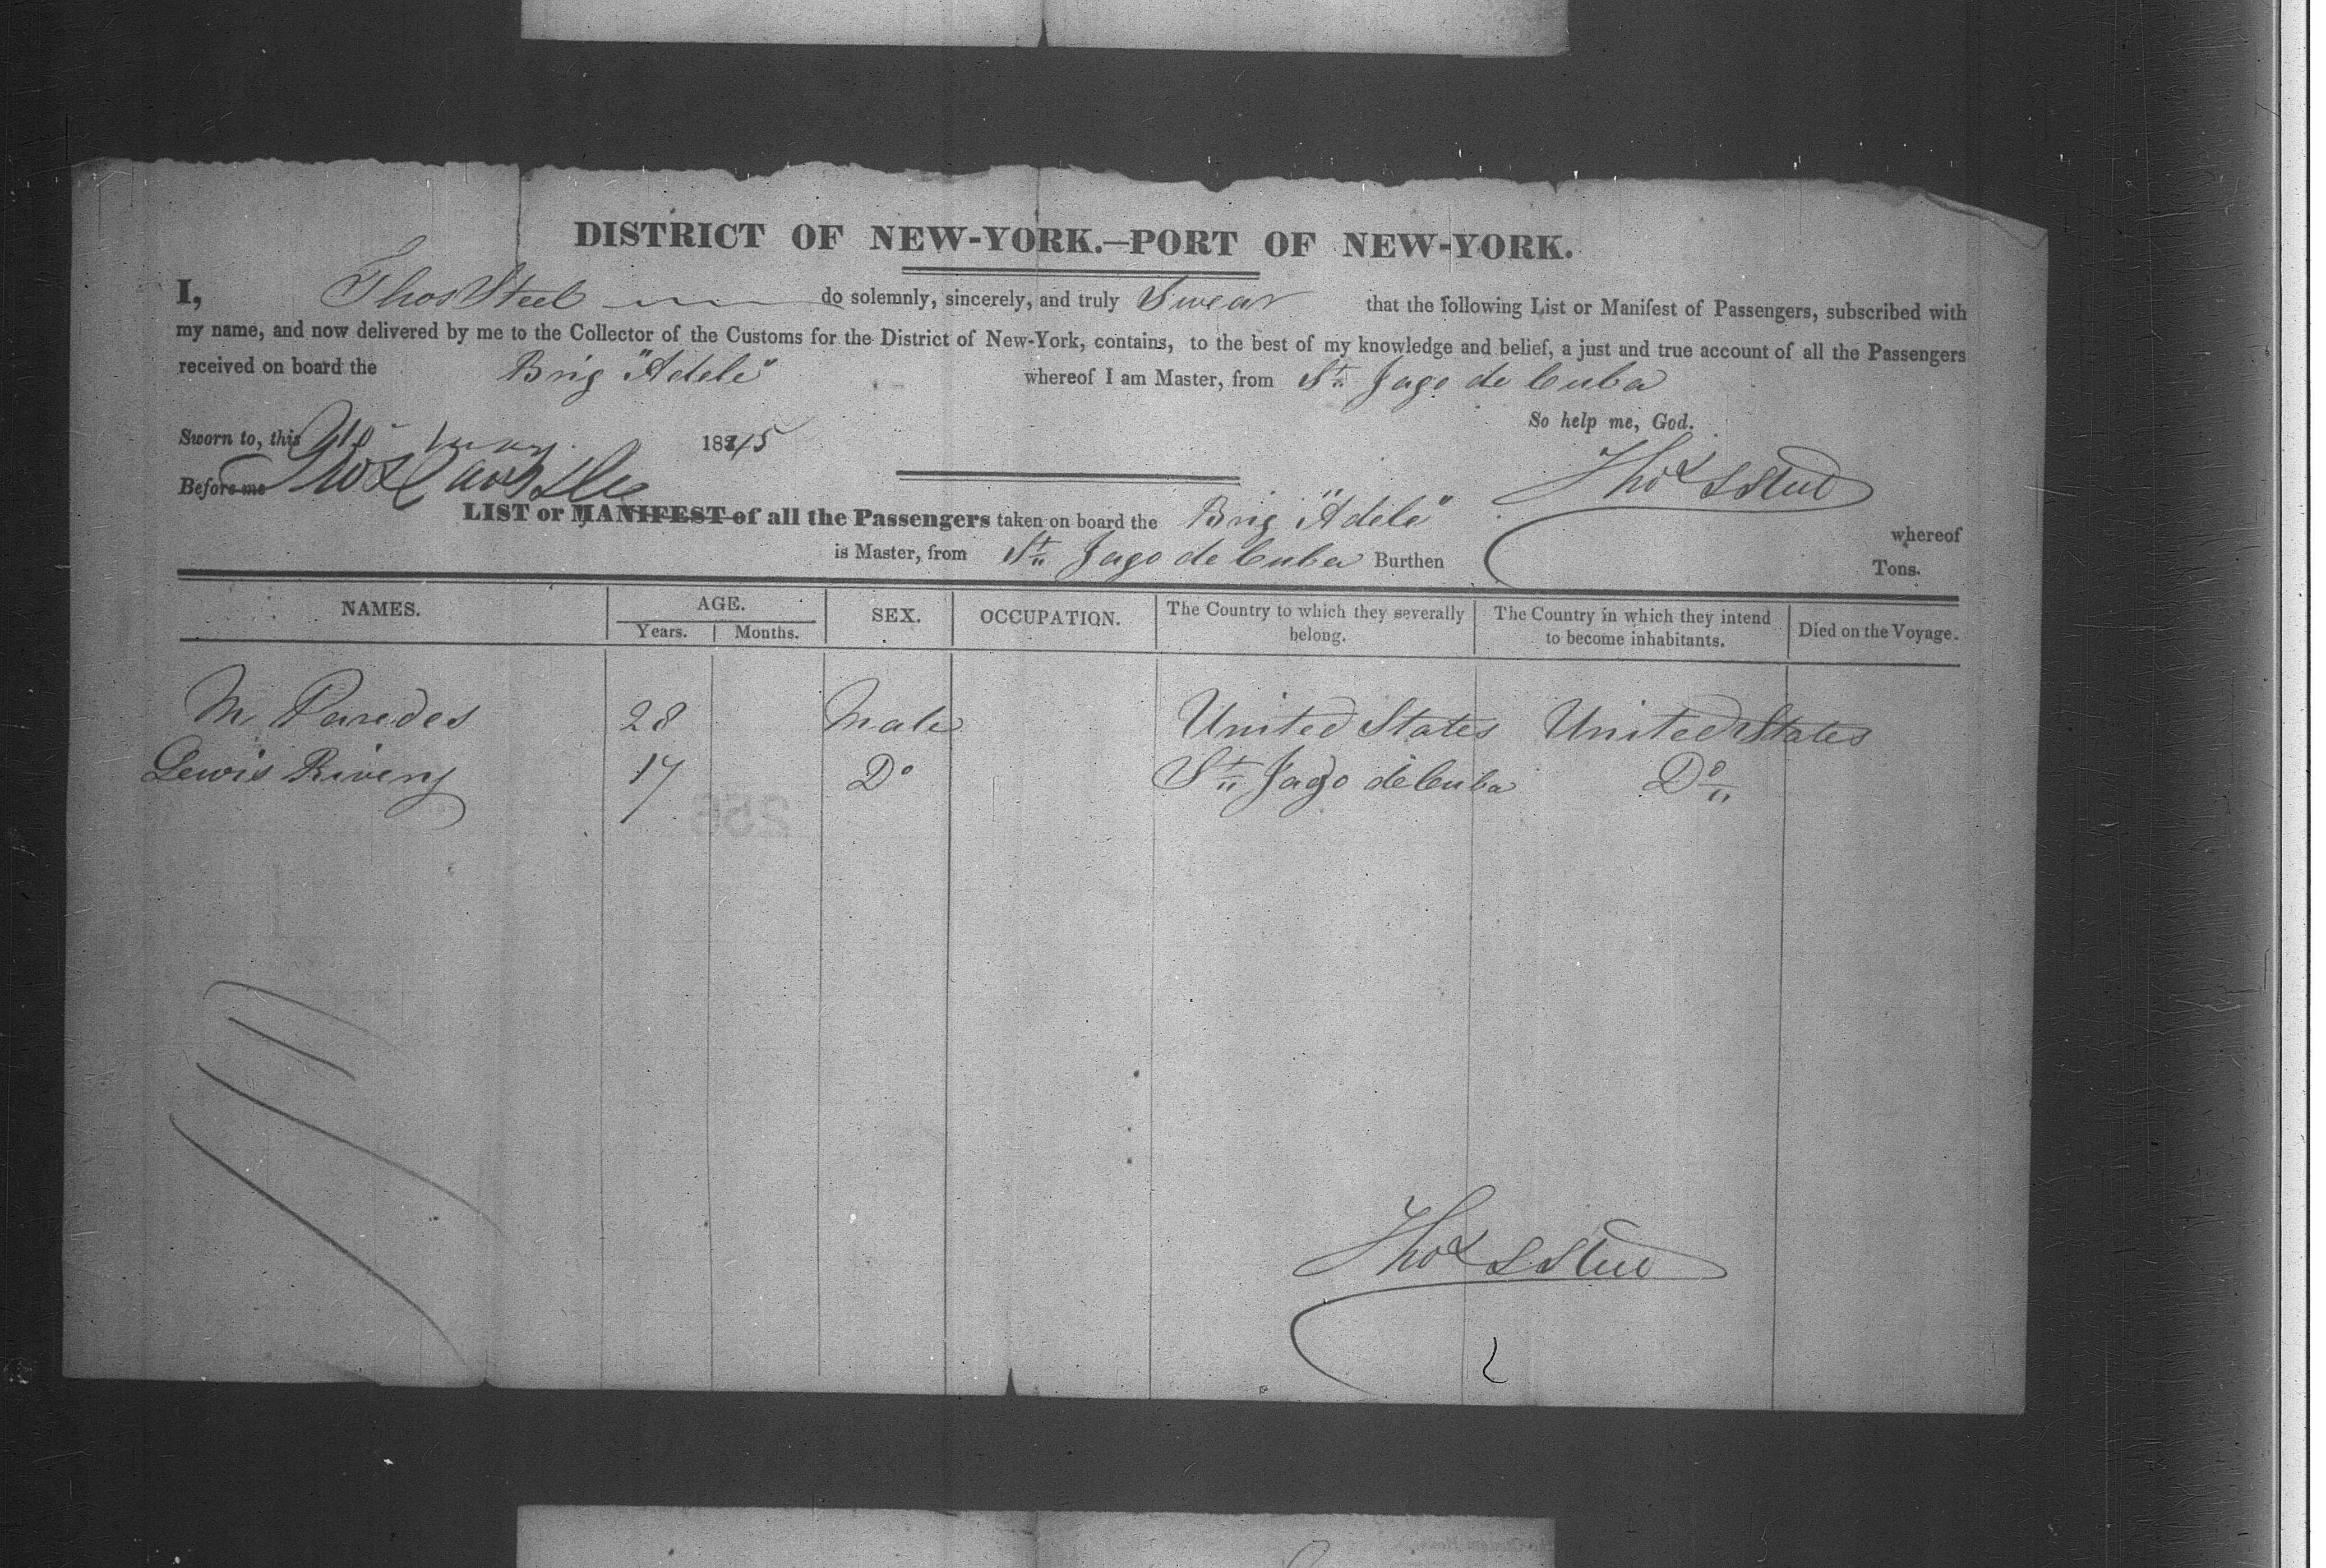 DISTRICT OF NEW-YORK.—PORT OF NEW-YORK.
I, Thos Steel do solemnly, sincerely, and truly Swear that the following List or Manifest of Passengers, subscribed with
my name, and now delivered by me to the Collector of the Customs for the District of New-York, contains, to the best of my knowledge and belief, a just and true account of all the Passengers
received on board the Brig "Adele" whereof I am Master, from St. Jago de Cuba
So help me, God.
Sworn to, this 1845
Before me Thos S Steel
LIST or MANIFEST of all the Passengers taken on board the Brig "Adele" whereof
is Master, from St. Jago de Cuba Burthen Tons.
NAMES. AGE. SEX. OCCUPATION. The Country to which they severally belong. The Country in which they intend to become inhabitants. Died on the Voyage.
Years. Months.
M Paredes 28 Male United States United States
Lewis Rivery 17 Do St. Jago de Cuba Do
256
Thos S Steel
2